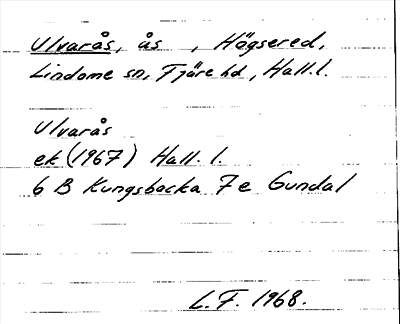 Ulvarås, ås , Hägsered,
Lindome sn, Fjäre hd, Hall. l.
Ulvarås
ek (1967) Hall. l.
6 B Kungsbacka 7e Gundal
L.F. 1968.